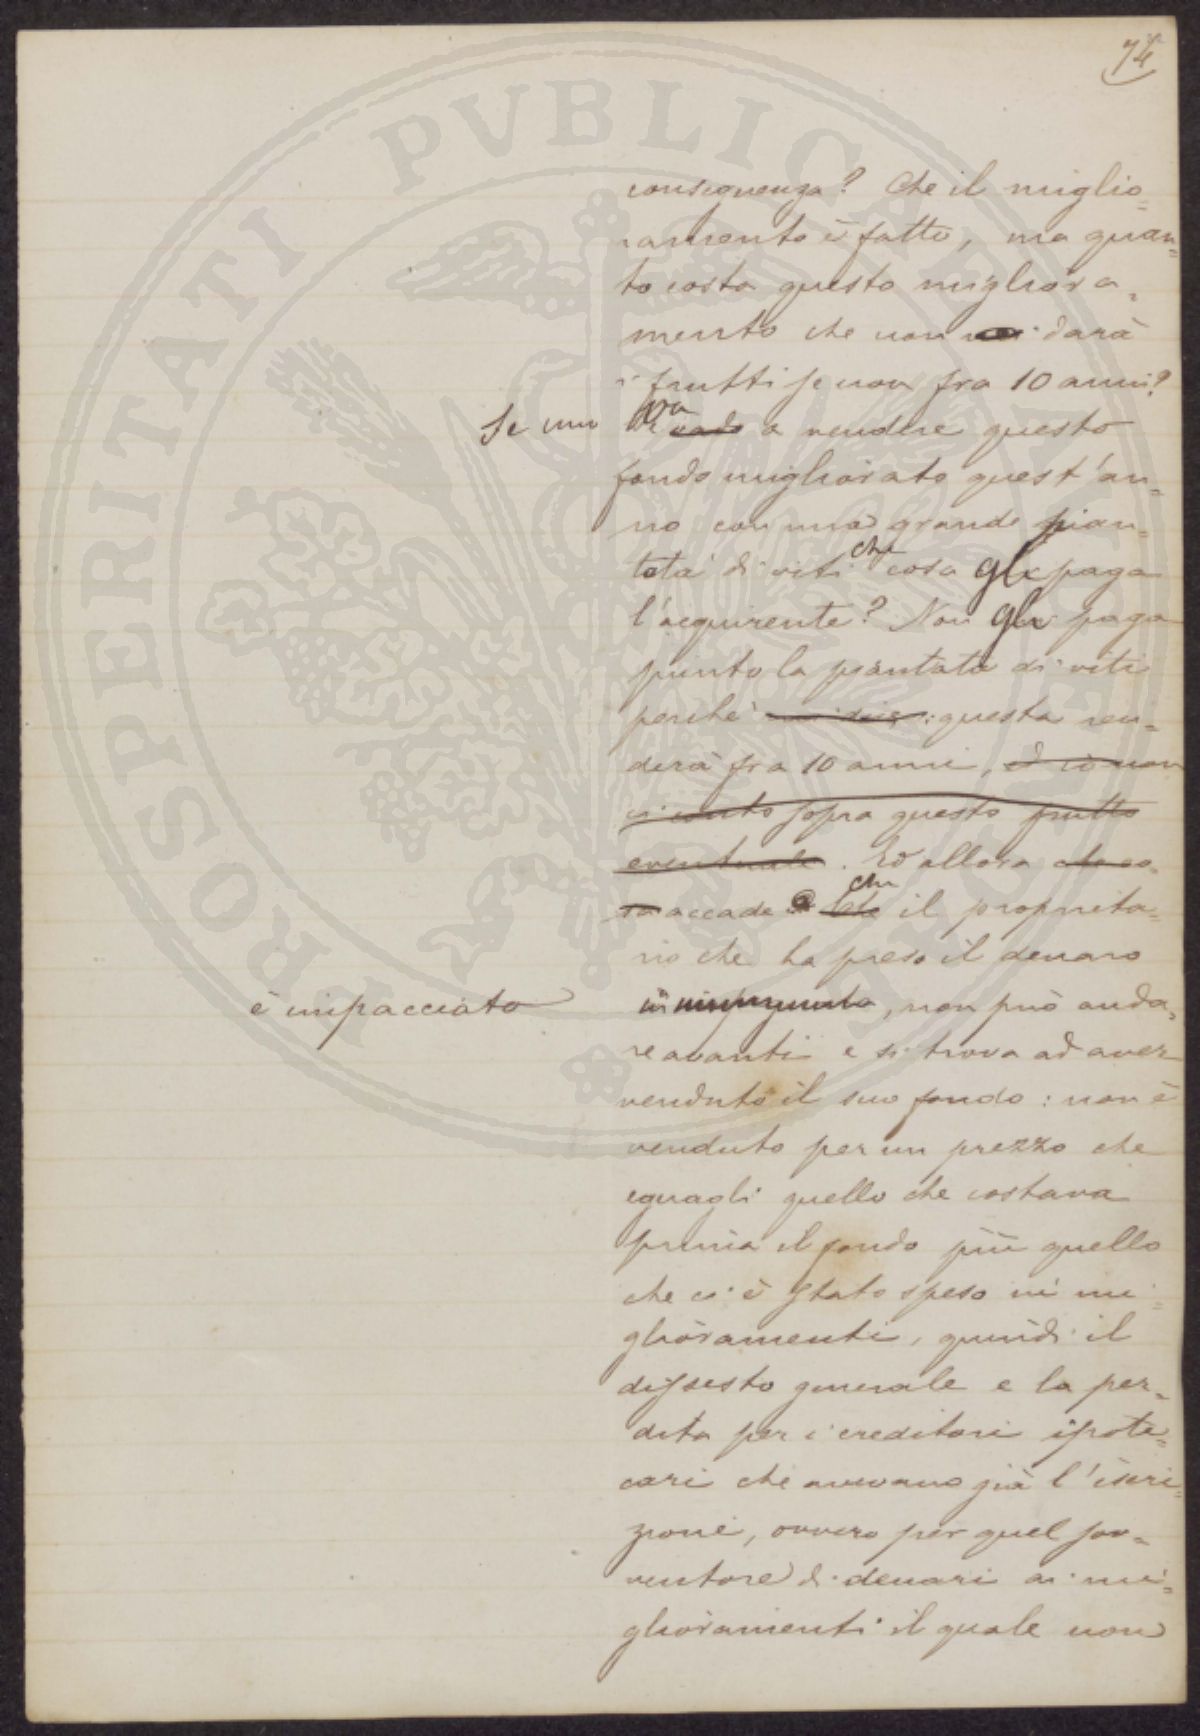 74
conseguenza? Che il miglio=
ramento è fatto, ma quan=
to costa questo migliora=
mento che non darà
i frutti se non fra 10 anni?
Se uno va vado a vendere questo
fondo migliorato quest'an=
no con una grande pian=
tata di viti che cosa gli paga
l'acquirente? Non gli paga
punto la piantata di viti
perchè : questa ren=
derà fra 10 anni, ed io non
ci conto sopra questo frutto
eventuale. Ed allora che co=
sa accade che il proprieta=
rio che ha preso il denaro
è impacciato
in , non può anda=
re avanti e si trova ad aver
venduto il suo fondo: non è
venduto per un prezzo che
eguagli quello che costava
prima il fondo più quello
che ci è stato speso in mi=
glioramenti, quindi il
dissesto generale e la per=
dita per i creditori ipote=
cari che avevano già l'iscri=
zione, ovvero per quel sov=
ventore di denari ai mi=
glioramenti il quale non
PROSPERITATI PVBLICAE